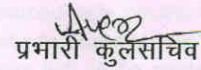 प्रभारी कुलसचिव